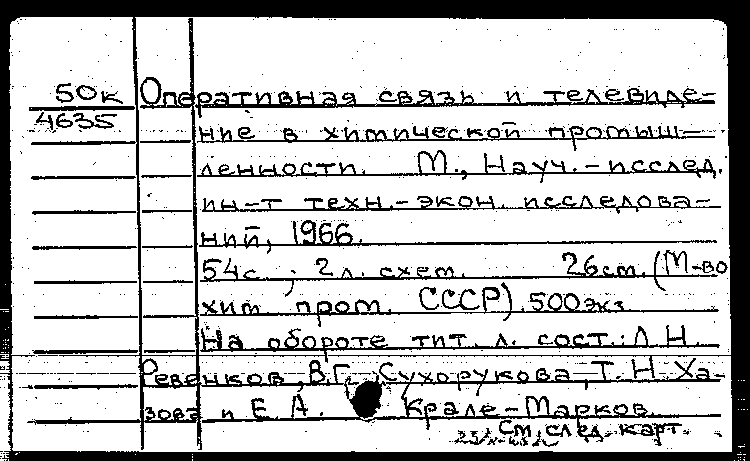 50к Оперативная связь и телевиде-
4635 ние в химической промыш-
ленности. М., Науч.-исслед.
ин-т техн.-экон. исследова-
ний, 1966.
54с.; 2 л. схем. 26см. (М-во
хим пром. СССР). 500экз
На обороте тит. л. сост.: Л Н.
Ревенков, В.Г. Сухорукова, Т. Н. Ха-
зова и Е. А. Крале-Марков.
См. след. карт.